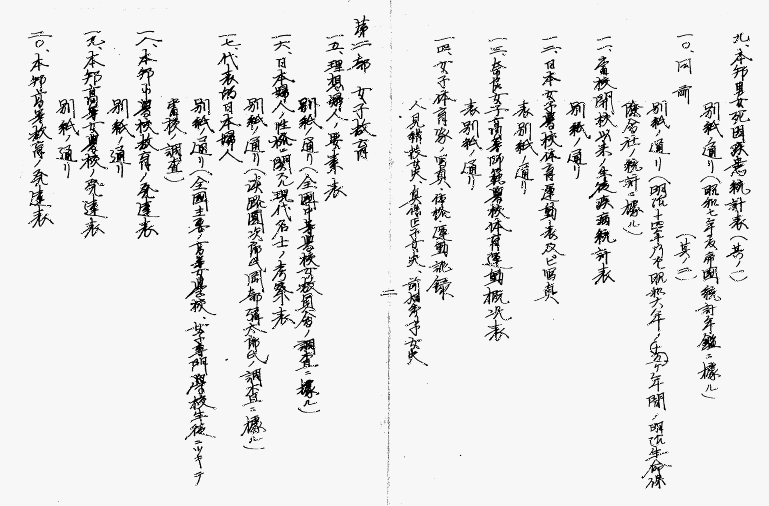 九、本邦男女死因疾患統計表（其ノ一）
別紙ノ通リ（昭和七年度帝國統計年鑑ニ據ル）
一〇、同前（其ノ二）
別紙ノ通リ（明治十四年乃至昭和六年ノ五〇ヶ年間ノ明治生命保
險會社ノ統計ニ據ル）
一一、當校開校以来ノ生徒疾病統計表
別紙ノ通リ
一二、日本女子學校体育運動表及ビ寫真
表別紙ノ通リ
一三、奈良女子高等師範學校体育運動概況表
表別紙ノ通リ
一四、女子体育家ノ寫真、体格、運動記録
人見絹枝女史、真保正子女史、前畑秀子女史
二
第二部 女子教育
一五、理想婦人ノ要素表
別紙ノ通リ（全國中等學校女教員會ノ調査ニ據ル）
一六、日本婦人ノ性格ニ関スル現代名士ノ考察表
別紙ノ通リ（淡路圓次郎氏岡部彌太郎氏ノ調査ニ據ル）
一七、代表的日本婦人
別紙ノ通リ（全國主要ノ高等女學校、女子専門學校生徒ニツキテ
當校ノ調査）
一八、本邦小學校教育ノ発達表
別紙ノ通リ
一九、本邦高等女學校ノ発達表
別紙ノ通リ
二〇、本邦高等教育ノ発達表